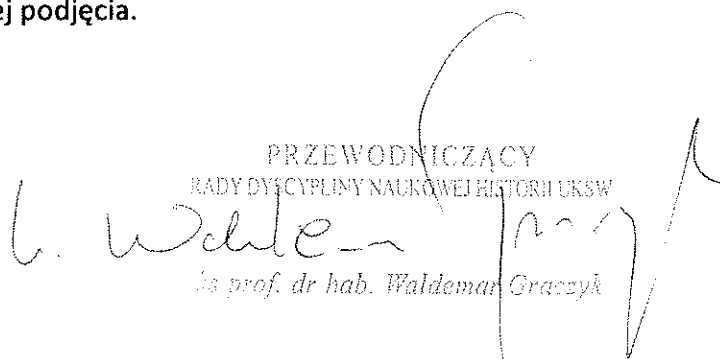 ej podjęcia.
PRZEWODNICZĄCY
RADY DYSCYPLINY NAUKOWEJ HISTORII UKSW
ks prof. dr hab. Waldemar Graczyk